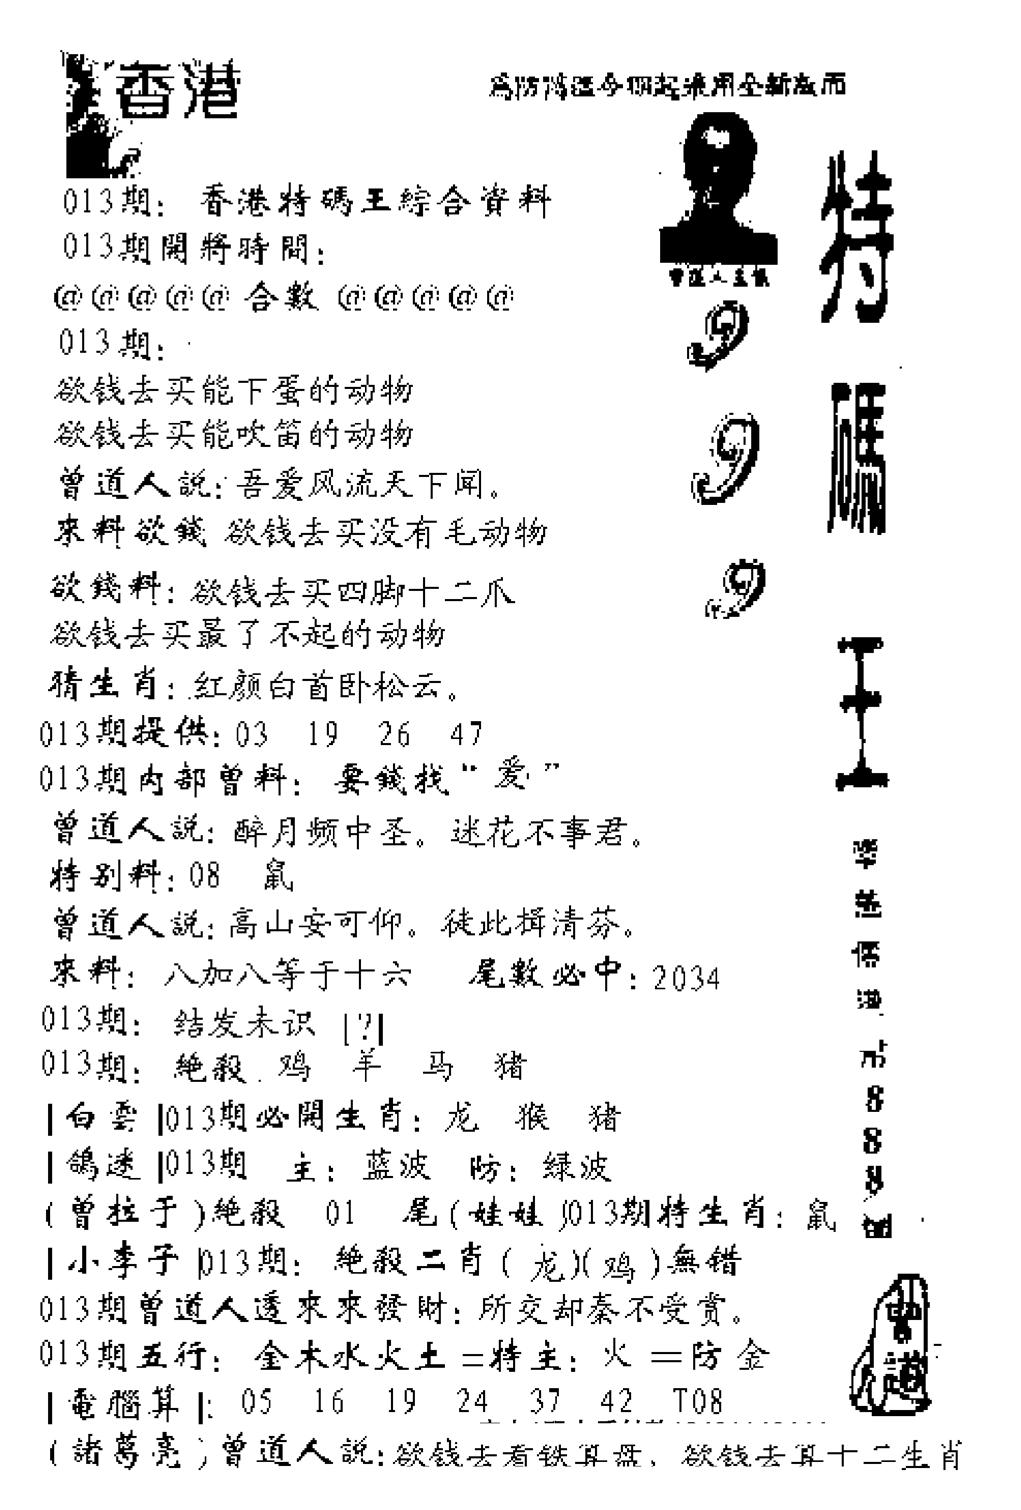 香港
013期：香港特碼王綜合資料
013期開將時間：
@@@@@合數@@@@@
013期：
欲钱去买能下蛋的动物
欲钱去买能吹笛的动物
曾道人説：吾爱风流天下闻。
來料欲錢 欲钱去买没有毛动物
欲錢料：欲钱去买四脚十二爪
欲钱去买最了不起的动物
猜生肖：红颜白首卧松云。
013期提供：03 19 26 47
013期内部曾料：要錢找“爱”
曾道人説：醉月频中圣。迷花不事君。
特别料：08 鼠
曾道人説：高山安可仰。徒此揖清芬。
來料：八加八等于十六 尾數必中：2034
013期：结发未识 [?]
013期：絶殺 鸡 羊 马 猪
|白雲|013期必開生肖：龙 猴 猪
|鴿迷|013期 主：蓝波 防：绿波
(曾拉于)絶殺 01 尾(娃娃)013期特生肖：鼠
|小李子|013期：絶殺二肖(龙)(鸡)無错
013期曾道人透來來發財：所交却秦不受赏。
013期五行：金木水火土=特主：火=防金
|電腦算|：05 16 19 24 37 42 T08
(諸葛亮)曾道人説：欲钱去看铁算盘，欲钱去算十二生肖
9
9
9
特
碼
王
港
888
曾道